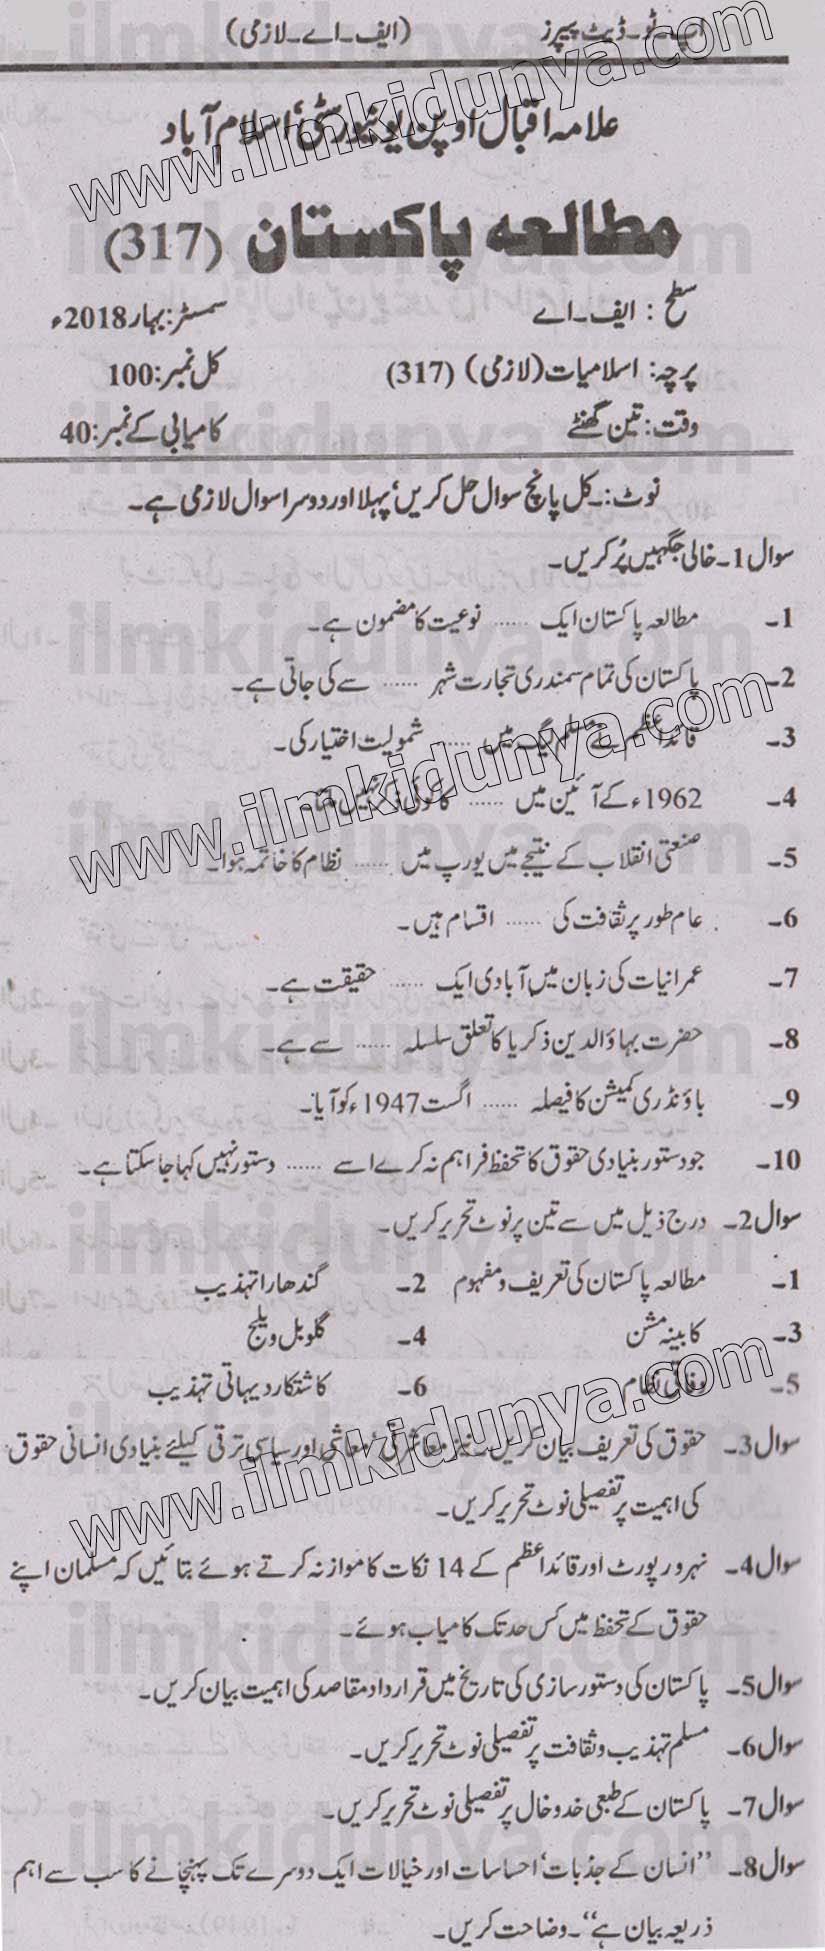 اپ۔ٹو۔ڈیٹ پیپرز (ایف۔اے۔لازمی)
علامہ اقبال اوپن یونیورسٹی، اسلام آباد
مطالعہ پاکستان (317)
سطح: ایف۔اے سمسٹر: بہار 2018ء
پرچہ: اسلامیات (لازمی) (317) کل نمبر: 100
وقت: تین گھنٹے کامیابی کے نمبر: 40
نوٹ:۔ کل پانچ سوال حل کریں، پہلا اور دوسرا سوال لازمی ہے۔
سوال 1۔ خالی جگہیں پُر کریں۔
1۔ مطالعہ پاکستان ایک ...... نوعیت کا مضمون ہے۔
2۔ پاکستان کی تمام سمندری تجارت شہر ...... سے کی جاتی ہے۔
3۔ قائداعظم نے مسلم لیگ میں ...... شمولیت اختیار کی۔
4۔ 1962ء کے آئین میں ...... کا کوئی ذکر نہیں تھا۔
5۔ صنعتی انقلاب کے نتیجے میں یورپ میں ...... نظام کا خاتمہ ہوا۔
6۔ عام طور پر ثقافت کی ...... اقسام ہیں۔
7۔ عمرانیات کی زبان میں آبادی ایک ...... حقیقت ہے۔
8۔ حضرت بہاؤالدین ذکریا کا تعلق سلسلہ ...... سے ہے۔
9۔ باؤنڈری کمیشن کا فیصلہ ...... اگست 1947ء کو آیا۔
10۔ جو دستور بنیادی حقوق کا تحفظ فراہم نہ کرے اسے ...... دستور نہیں کہا جا سکتا ہے۔
سوال 2۔ درج ذیل میں سے تین پر نوٹ تحریر کریں۔
1۔ مطالعہ پاکستان کی تعریف و مفہوم 2۔ گندھارا تہذیب
3۔ کابینہ مشن 4۔ گلوبل ویلج
5۔ وفاقی نظام 6۔ کاشتکار دیہاتی تہذیب
سوال 3۔ حقوق کی تعریف بیان کریں۔ نیز معاشرتی، معاشی اور سیاسی ترقی کیلئے بنیادی انسانی حقوق
کی اہمیت پر تفصیلی نوٹ تحریر کریں۔
سوال 4۔ نہرو رپورٹ اور قائداعظم کے 14 نکات کا موازنہ کرتے ہوئے بتائیں کہ مسلمان اپنے
حقوق کے تحفظ میں کس حد تک کامیاب ہوئے۔
سوال 5۔ پاکستان کی دستور سازی کی تاریخ میں قرارداد مقاصد کی اہمیت بیان کریں۔
سوال 6۔ مسلم تہذیب و ثقافت پر تفصیلی نوٹ تحریر کریں۔
سوال 7۔ پاکستان کے طبعی خدوخال پر تفصیلی نوٹ تحریر کریں۔
سوال 8۔ "انسان کے جذبات، احساسات اور خیالات ایک دوسرے تک پہنچانے کا سب سے اہم
ذریعہ بیان ہے"۔ وضاحت کریں۔
www.ilmkidunya.com
www.ilmkidunya.com
www.ilmkidunya.com